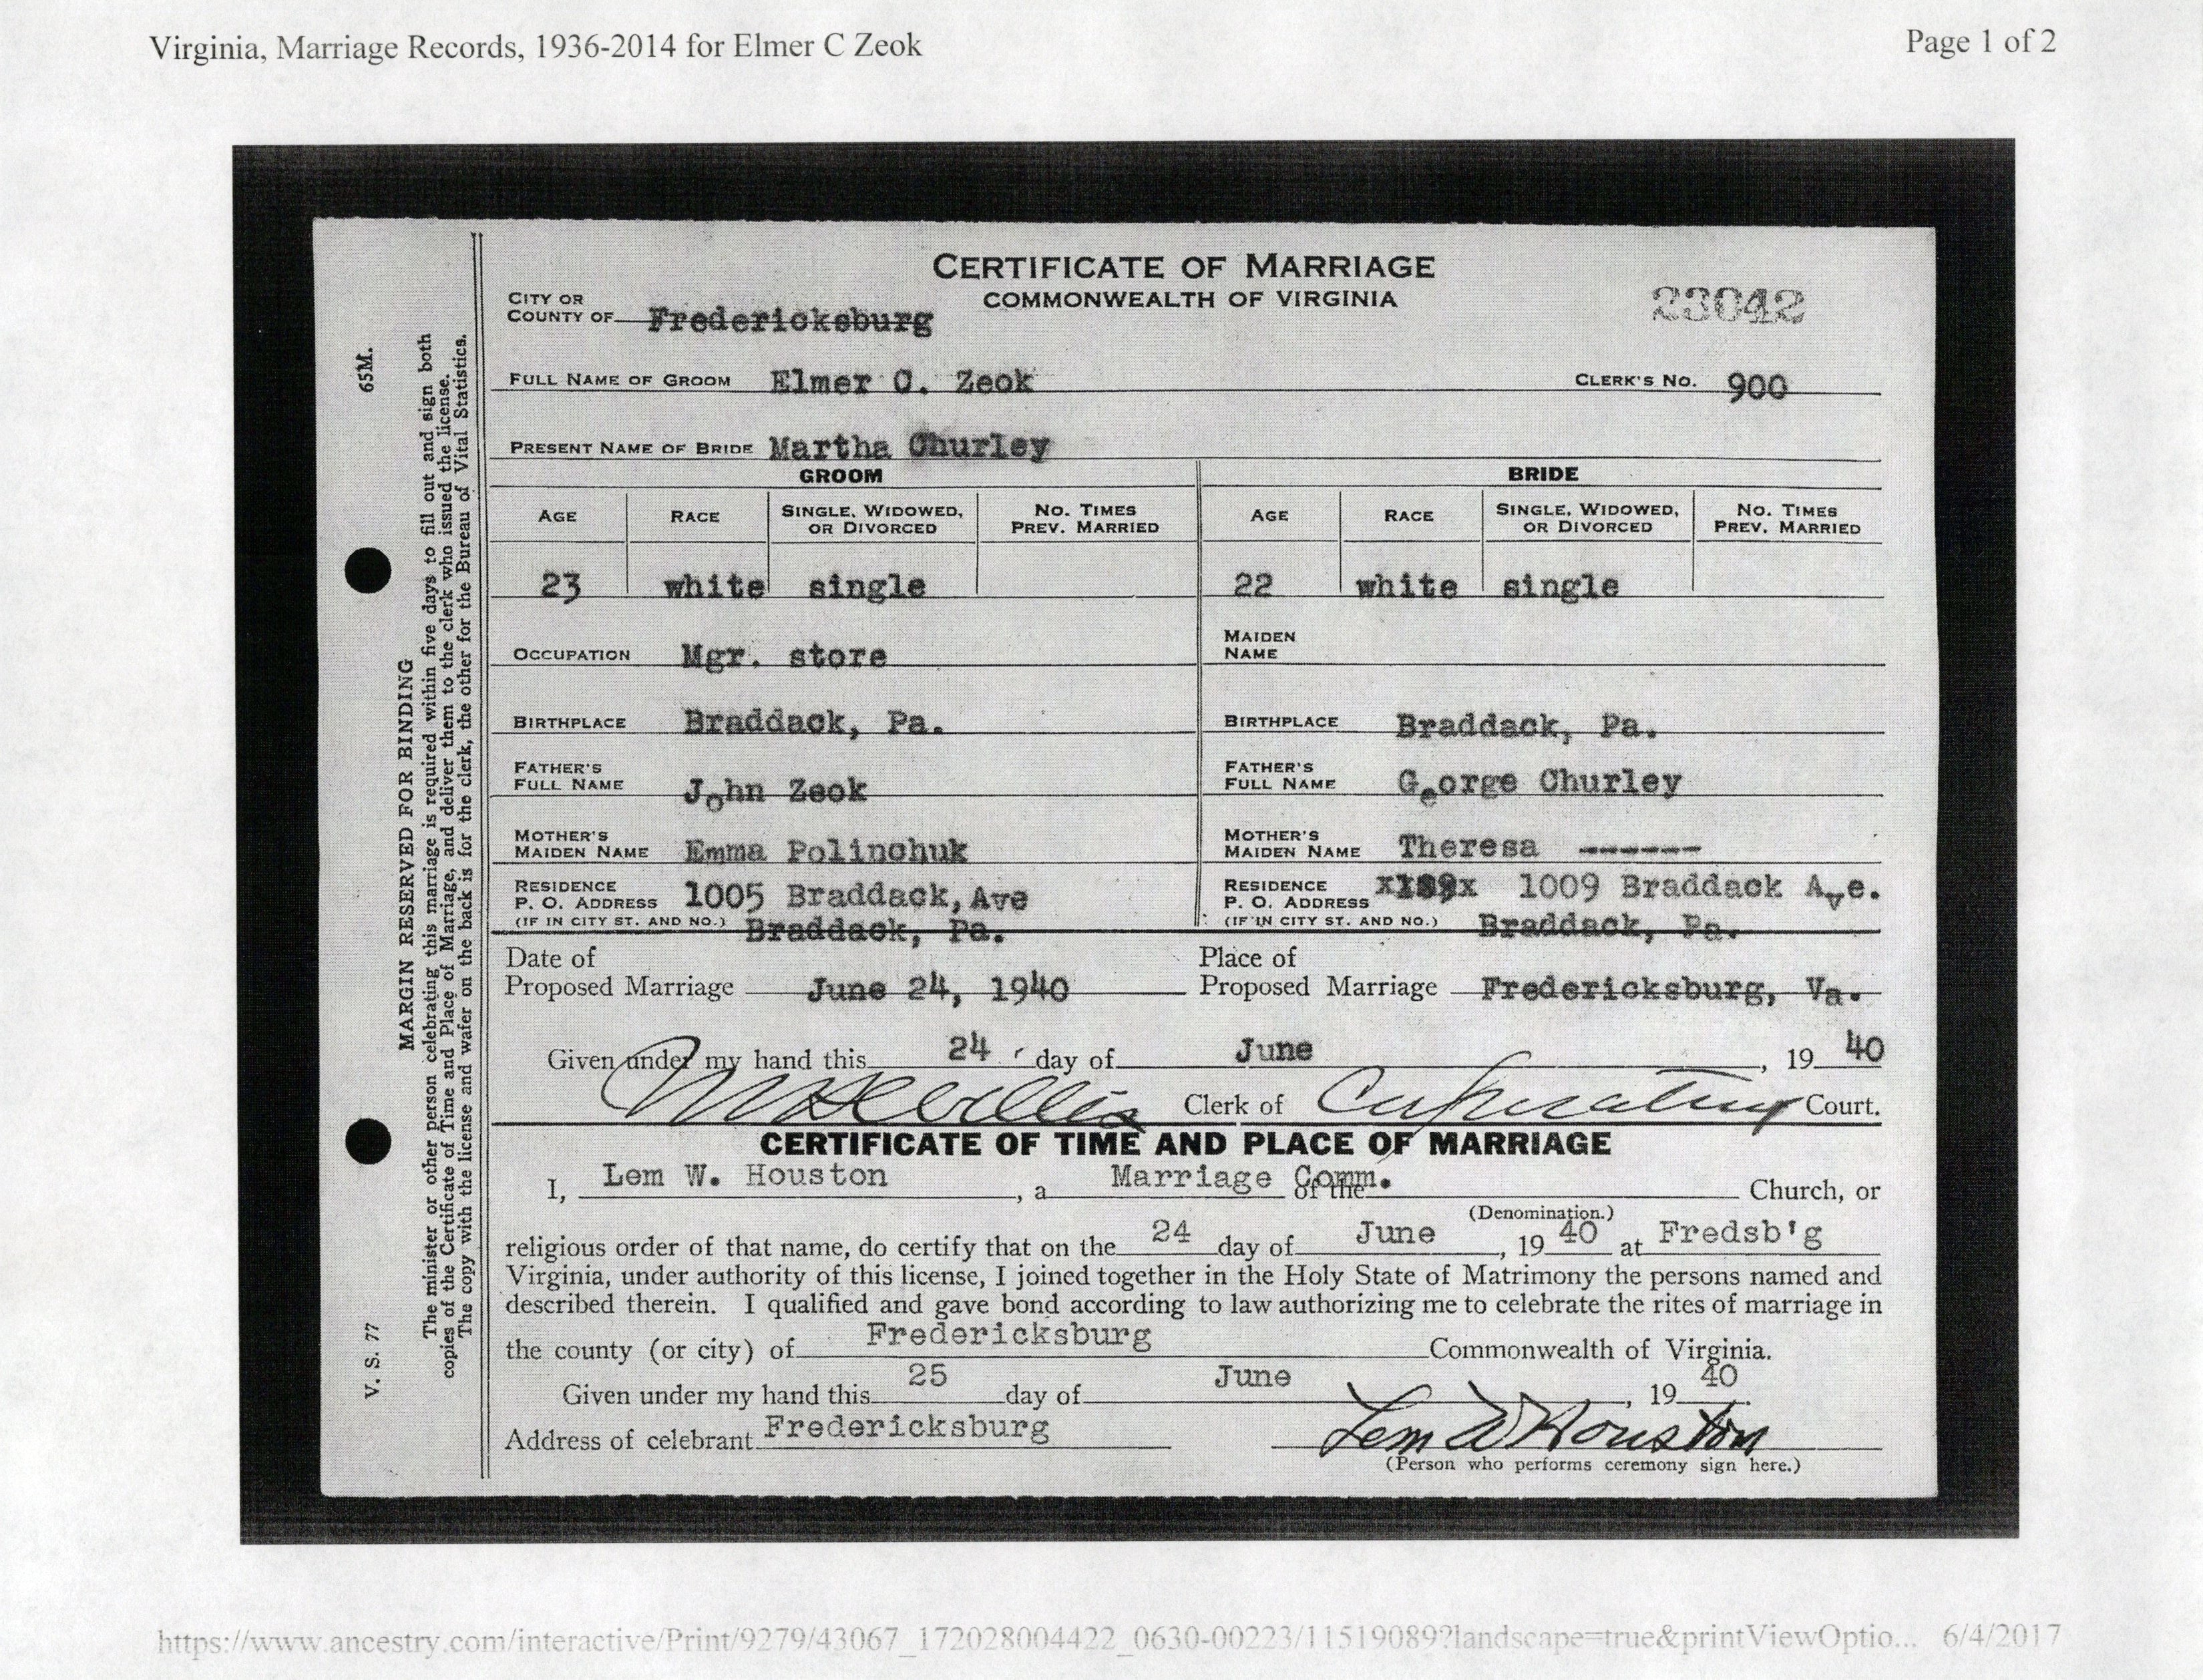 Virginia, Marriage Records, 1936-2014 for Elmer C Zeok
Page 1 of 2
65M.
MARGIN RESERVED FOR BINDING
The minister or other person celebrating this marriage is required within five days to fill out and sign both
copies of the Certificate of Time and Place of Marriage, and deliver them to the clerk who issued the license.
The copy with the license and wafer on the back is for the clerk, the other for the Bureau of Vital Statistics.
V. S. 77
CERTIFICATE OF MARRIAGE
COMMONWEALTH OF VIRGINIA
23042
CITY OR
COUNTY OF Fredericksburg
FULL NAME OF GROOM Elmer C. Zeok CLERK'S NO. 900
PRESENT NAME OF BRIDE Martha Churley
GROOM BRIDE
AGE RACE SINGLE, WIDOWED, OR DIVORCED NO. TIMES PREV. MARRIED AGE RACE SINGLE, WIDOWED, OR DIVORCED NO. TIMES PREV. MARRIED
23 white single 22 white single
OCCUPATION Mgr. store MAIDEN NAME
BIRTHPLACE Braddack, Pa. BIRTHPLACE Braddack, Pa.
FATHER'S FULL NAME John Zeok FATHER'S FULL NAME George Churley
MOTHER'S MAIDEN NAME Emma Polinchuk MOTHER'S MAIDEN NAME Theresa ------
RESIDENCE P. O. ADDRESS 1005 Braddack, Ave RESIDENCE P. O. ADDRESS 1009 Braddack Ave.
(IF IN CITY ST. AND NO.) Braddack, Pa. (IF IN CITY ST. AND NO.) Braddack, Pa.
Date of Proposed Marriage June 24, 1940 Place of Proposed Marriage Fredericksburg, Va.
Given under my hand this 24 day of June, 19 40
Clerk of Corporation Court.
CERTIFICATE OF TIME AND PLACE OF MARRIAGE
I, Lem W. Houston, a Marriage Comm. of the Church, or
(Denomination.)
religious order of that name, do certify that on the 24 day of June, 19 40 at Fredsb'g
Virginia, under authority of this license, I joined together in the Holy State of Matrimony the persons named and
described therein. I qualified and gave bond according to law authorizing me to celebrate the rites of marriage in
the county (or city) of Fredericksburg Commonwealth of Virginia.
Given under my hand this 25 day of June, 19 40.
Address of celebrant Fredericksburg Lem W Houston
(Person who performs ceremony sign here.)
https://www.ancestry.com/interactive/Print/9279/43067_172028004422_0630-00223/11519089?landscape=true&printViewOptio... 6/4/2017